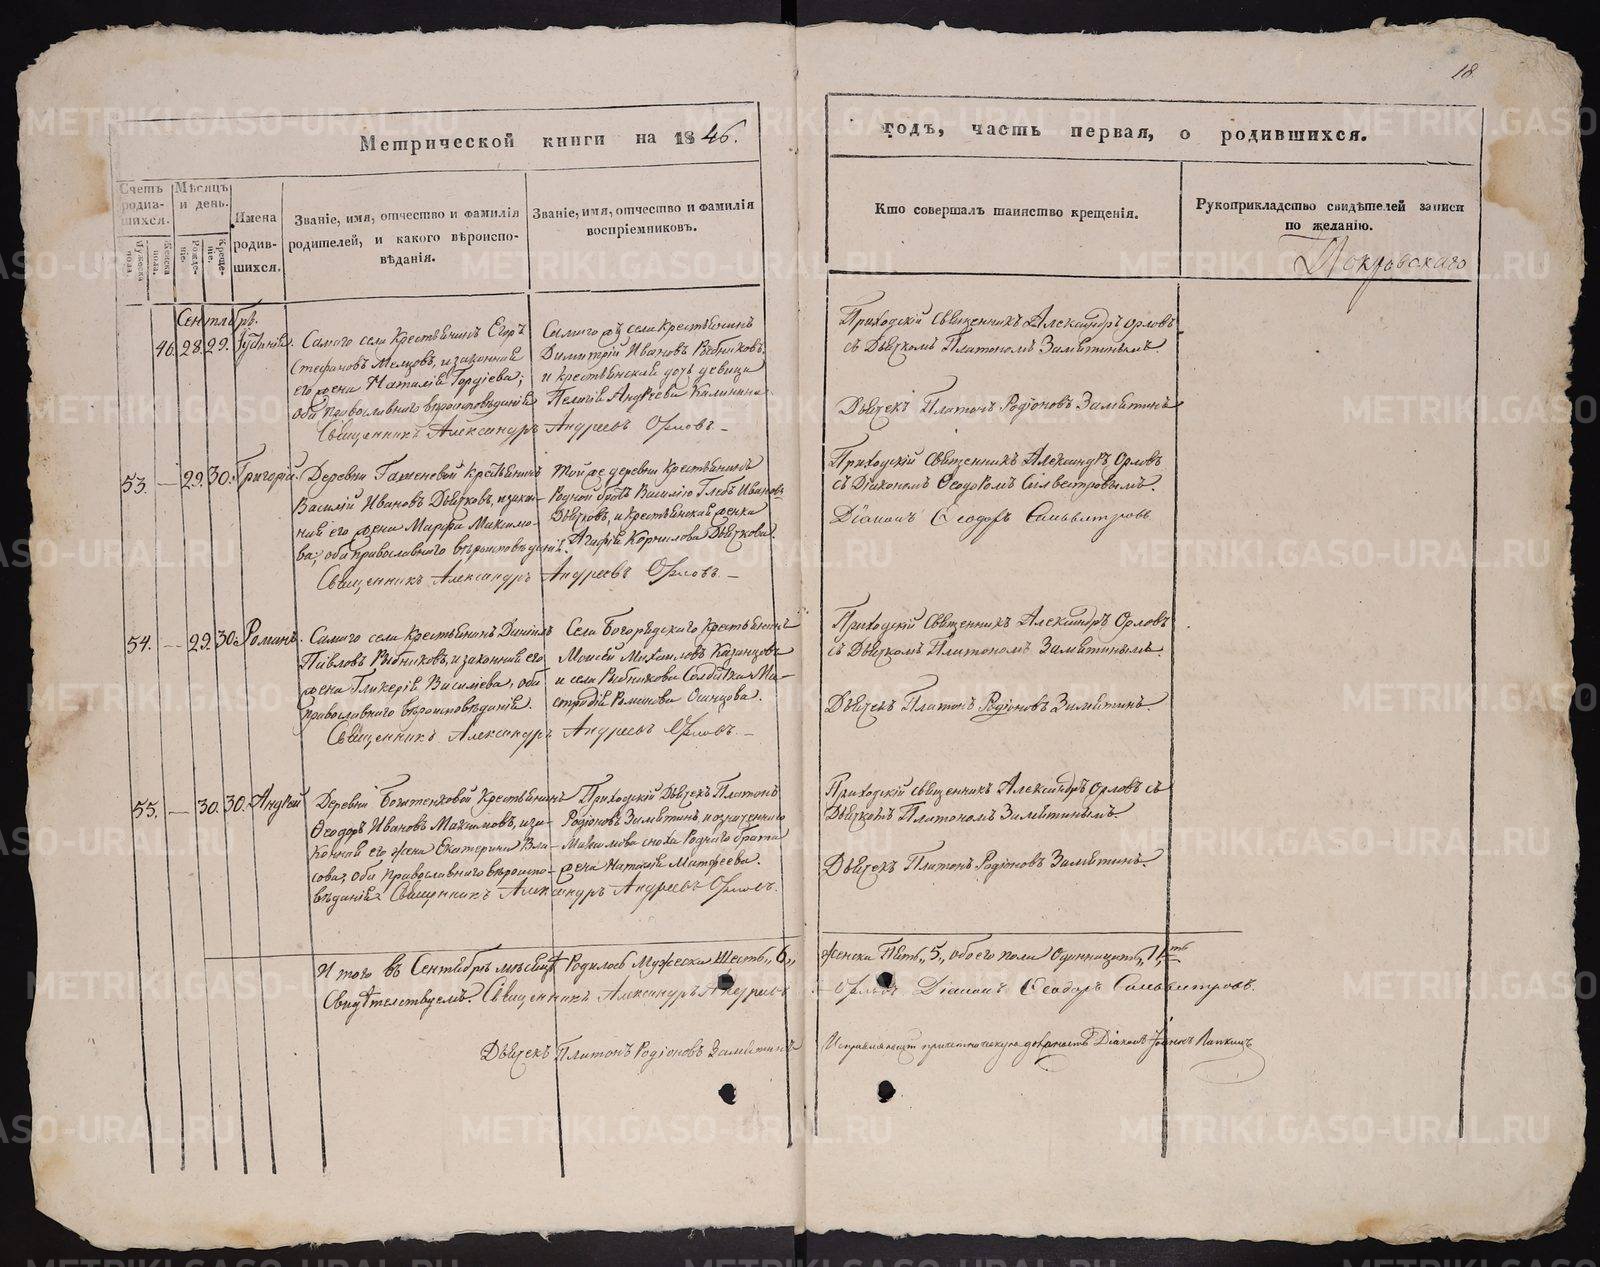 18
Метрической книги на 1846.
годъ, часть первая, о родившихся.
Счетъ родив-шихся.
Мужеска пола.
Женска пола.
Мѣсяцъ и день.
Рожде-нiе.
Креще-нiе.
Имена родив-шихся.
Званiе, имя, отчество и фамилiя
родителей, и какого вѣроиспо-
вѣданiя.
Званiе, имя, отчество и фамилiя
воспрiемниковъ.
Кто совершалъ таинство крещенiя.
Рукоприкладство свидѣтелей записи
по желанiю.
Покровскаго
Сентябрь
46. 28. 29.
Самаго села крестьянинъ Егоръ
Стефановъ, и законная
его жена Наталiя Гордiева;
оба православнаго вѣроисповѣданiя
Самаго жъ села крестьянинъ
Димитрiй Ивановъ Рыбниковъ
и крестьянская дочь девица
Пелагiя Андреева Калинина
Священникъ Александръ Андреевъ Орловъ.
Приходскiй священникъ Александръ Орловъ
съ Дьячкомъ Платономъ Замятинымъ.
Дьячекъ Платонъ Родiоновъ Замятинъ
53. — 29. 30. Григорiй.
Деревни крестьянинъ
Василiй Ивановъ Дьячковъ, и закон-
ная его жена Марфа Максимо-
ва; оба православнаго вѣроисповѣданiя.
Той же деревни крестьянинъ
родной братъ Василiю Глебъ Ивановъ
Дьячковъ, и крестьянская женка
Агафiя Корнилова Дьячкова.
Священникъ Александръ Андреевъ Орловъ. —
Приходскiй священникъ Александръ Орловъ
съ Дiакономъ Ѳеодоромъ Сильвестровымъ.
Дiаконъ Ѳеодоръ Сильвестровъ
54. — 29. 30. Романъ.
Самаго села крестьянинъ Данiилъ
Павловъ Рыбниковъ, и законная его
жена Гликерiя Василiева, оба
православнаго вѣроисповѣданiя.
Села Богородскаго крестьянинъ
Моисей Михаиловъ Казанцовъ
и села Рыбникова Солдатка На-
стасiя Романова Осинцова.
Священникъ Александръ Андреевъ Орловъ. —
Приходскiй священникъ Александръ Орловъ
съ Дьячкомъ Платономъ Замятинымъ.
Дьячекъ Платонъ Родiоновъ Замятинъ.
55. — 30. 30. Андрей
Деревни Богатенковой крестьянинъ
Ѳеодоръ Ивановъ Максимовъ, и за-
конная его жена Екатерина Вла-
сова, оба православнаго вѣроиспо-
вѣданiя.
Приходскiй Дьячекъ Платонъ
Родiоновъ Замятинъ, и означеннаго
Максимова сноха роднаго брата
жена Наталiя Матфеева.
Священникъ Александръ Андреевъ Орловъ.
Приходскiй священникъ Александръ Орловъ съ
Дьячкомъ Платономъ Замятинымъ.
Дьячекъ Платонъ Родiоновъ Замятинъ.
Итого въ Сентябрѣ месяцѣ родилось мужеска шесть „6„ женска пять „5„ обоего пола одиннадцать „11„
Свидѣтелствуемъ: Священникъ Александръ Андреевъ Орловъ Дiаконъ Ѳеодоръ Сильвестровъ.
Дьячекъ Платонъ Родiоновъ Замятинъ Исправляющiй причетническую должность Дiаконъ Iоаннъ Лапкинъ
METRIKI.GASO-URAL.RU